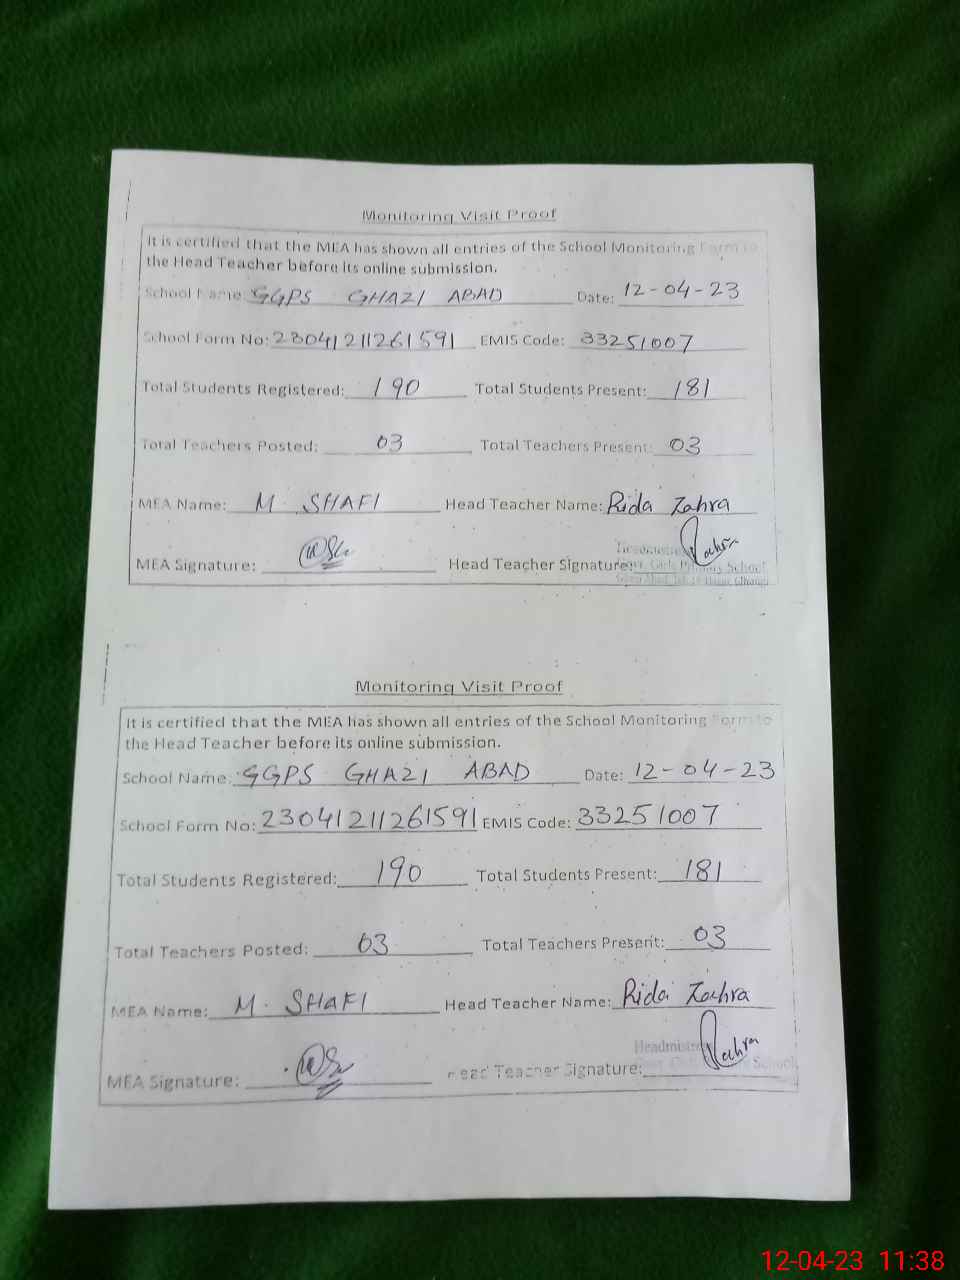 Monitoring Visit Proof
It is certified that the MEA has shown all entries of the School Monitoring Form to
the Head Teacher before its online submission.
School Name: GGPS GHAZI ABAD Date: 12-04-23
School Form No: 23041211261591 EMIS Code: 33251007
Total Students Registered: 190 Total Students Present: 181
Total Teachers Posted: 03 Total Teachers Present: 03
MEA Name: M. SHAFI Head Teacher Name: Rida Zahra
MEA Signature: Head Teacher Signature: Zahra
Girls Primary School
Monitoring Visit Proof
It is certified that the MEA has shown all entries of the School Monitoring Form to
the Head Teacher before its online submission.
School Name: GGPS GHAZI ABAD Date: 12-04-23
School Form No: 23041211261591 EMIS Code: 33251007
Total Students Registered: 190 Total Students Present: 181
Total Teachers Posted: 03 Total Teachers Present: 03
MEA Name: M. SHAFI Head Teacher Name: Rida Zahra
MEA Signature: Head Teacher Signature: Zahra
School
12-04-23 11:38